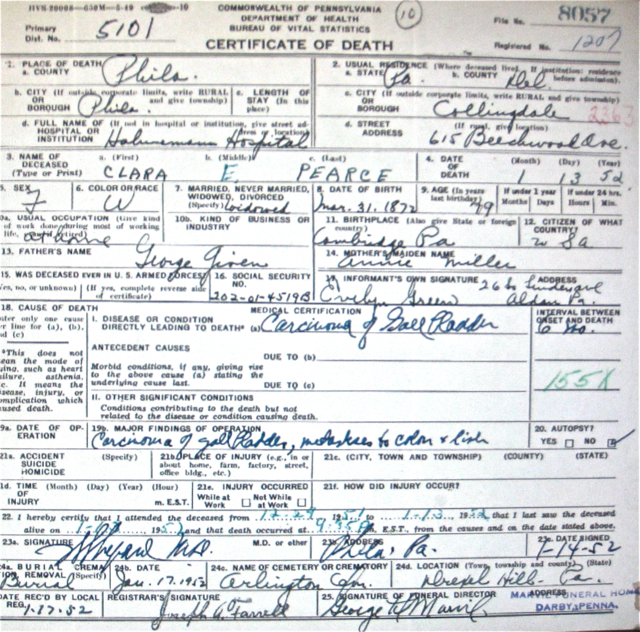 COMMONWEALTH OF PENNSYLVANIA
DEPARTMENT OF HEALTH
BUREAU OF VITAL STATISTICS
10
File No. 8057
Primary Dist. No. 5101
CERTIFICATE OF DEATH
Registered No. 1207
1. PLACE OF DEATH
a. COUNTY Phila.
2. USUAL RESIDENCE (Where deceased lived. If institution: residence before admission).
a. STATE Pa. b. COUNTY Del
b. CITY (If outside corporate limits, write RURAL and give township) OR BOROUGH Phila.
c. LENGTH OF STAY (In this place)
c. CITY (If outside corporate limits, write RURAL and give township) OR BOROUGH Collingdale 2363
d. FULL NAME OF (If not in hospital or institution, give street address or location) HOSPITAL OR INSTITUTION Hahnemann Hospital
d. STREET ADDRESS (If rural, give location) 615 Beechwood Ave.
3. NAME OF DECEASED (Type or Print)
a. (First) CLARA b. (Middle) E. c. (Last) PEARCE
4. DATE OF DEATH (Month) (Day) (Year) 1 13 52
5. SEX F
6. COLOR OR RACE W
7. MARRIED, NEVER MARRIED, WIDOWED, DIVORCED (Specify) Widowed
8. DATE OF BIRTH Mar. 31. 1872
9. AGE (In years last birthday) 79
If under 1 year Months Days
If under 24 hrs. Hours Min.
0a. USUAL OCCUPATION (Give kind of work done during most of working life, even if retired) at home
10b. KIND OF BUSINESS OR INDUSTRY
11. BIRTHPLACE (Also give State or foreign country) Cambridge Pa
12. CITIZEN OF WHAT COUNTRY? U Sa
13. FATHER'S NAME George Given
14. MOTHER'S MAIDEN NAME Annie Miller
15. WAS DECEASED EVER IN U. S. ARMED FORCES? (Yes, no, or unknown) (If yes, complete reverse side of certificate)
16. SOCIAL SECURITY NO. 202-01-4519B
17. INFORMANT'S OWN SIGNATURE Evelyn Green
ADDRESS Aldan Pa.
18. CAUSE OF DEATH
Enter only one cause per line for (a), (b), and (c)
MEDICAL CERTIFICATION
INTERVAL BETWEEN ONSET AND DEATH
I. DISEASE OR CONDITION DIRECTLY LEADING TO DEATH* (a) Carcinoma of Gall Bladder
6 mo.
*This does not mean the mode of dying, such as heart failure, asthenia, etc. It means the disease, injury, or complication which caused death.
ANTECEDENT CAUSES
Morbid conditions, if any, giving rise to the above cause (a) stating the underlying cause last.
DUE TO (b)
DUE TO (c)
155X
II. OTHER SIGNIFICANT CONDITIONS
Conditions contributing to the death but not related to the disease or condition causing death.
19a. DATE OF OPERATION
19b. MAJOR FINDINGS OF OPERATION
Carcinoma of gall bladder, metastases to colon &
20. AUTOPSY? YES NO
21a. ACCIDENT SUICIDE HOMICIDE (Specify)
21b. PLACE OF INJURY (e.g., in or about home, farm, factory, street, office bldg., etc.)
21c. (CITY, TOWN AND TOWNSHIP) (COUNTY) (STATE)
1d. TIME OF INJURY (Month) (Day) (Year) (Hour) m. E.S.T.
21e. INJURY OCCURRED While at Work Not While at Work
21f. HOW DID INJURY OCCUR?
22. I hereby certify that I attended the deceased from 12-29 1951 to 1-13 1952 that I last saw the deceased
alive on 195 and that death occurred at m. E.S.T., from the causes and on the date stated above.
23a. SIGNATURE M.D. or other
23b. ADDRESS Phila, Pa.
23c. DATE SIGNED 1-14-52
24a. BURIAL, CREMATION, REMOVAL (Specify) Burial
24b. DATE Jan. 17. 1952
24c. NAME OF CEMETERY OR CREMATORY Arlington Cem.
24d. LOCATION (Town, township and county) (State) Drexel Hill - Pa.
DATE REC'D BY LOCAL REG. 1-17-52
REGISTRAR'S SIGNATURE Joseph A. Farrell
25. SIGNATURE OF FUNERAL DIRECTOR George Marvil
ADDRESS
MARVIL FUNERAL HOME
DARBY, PENNA.